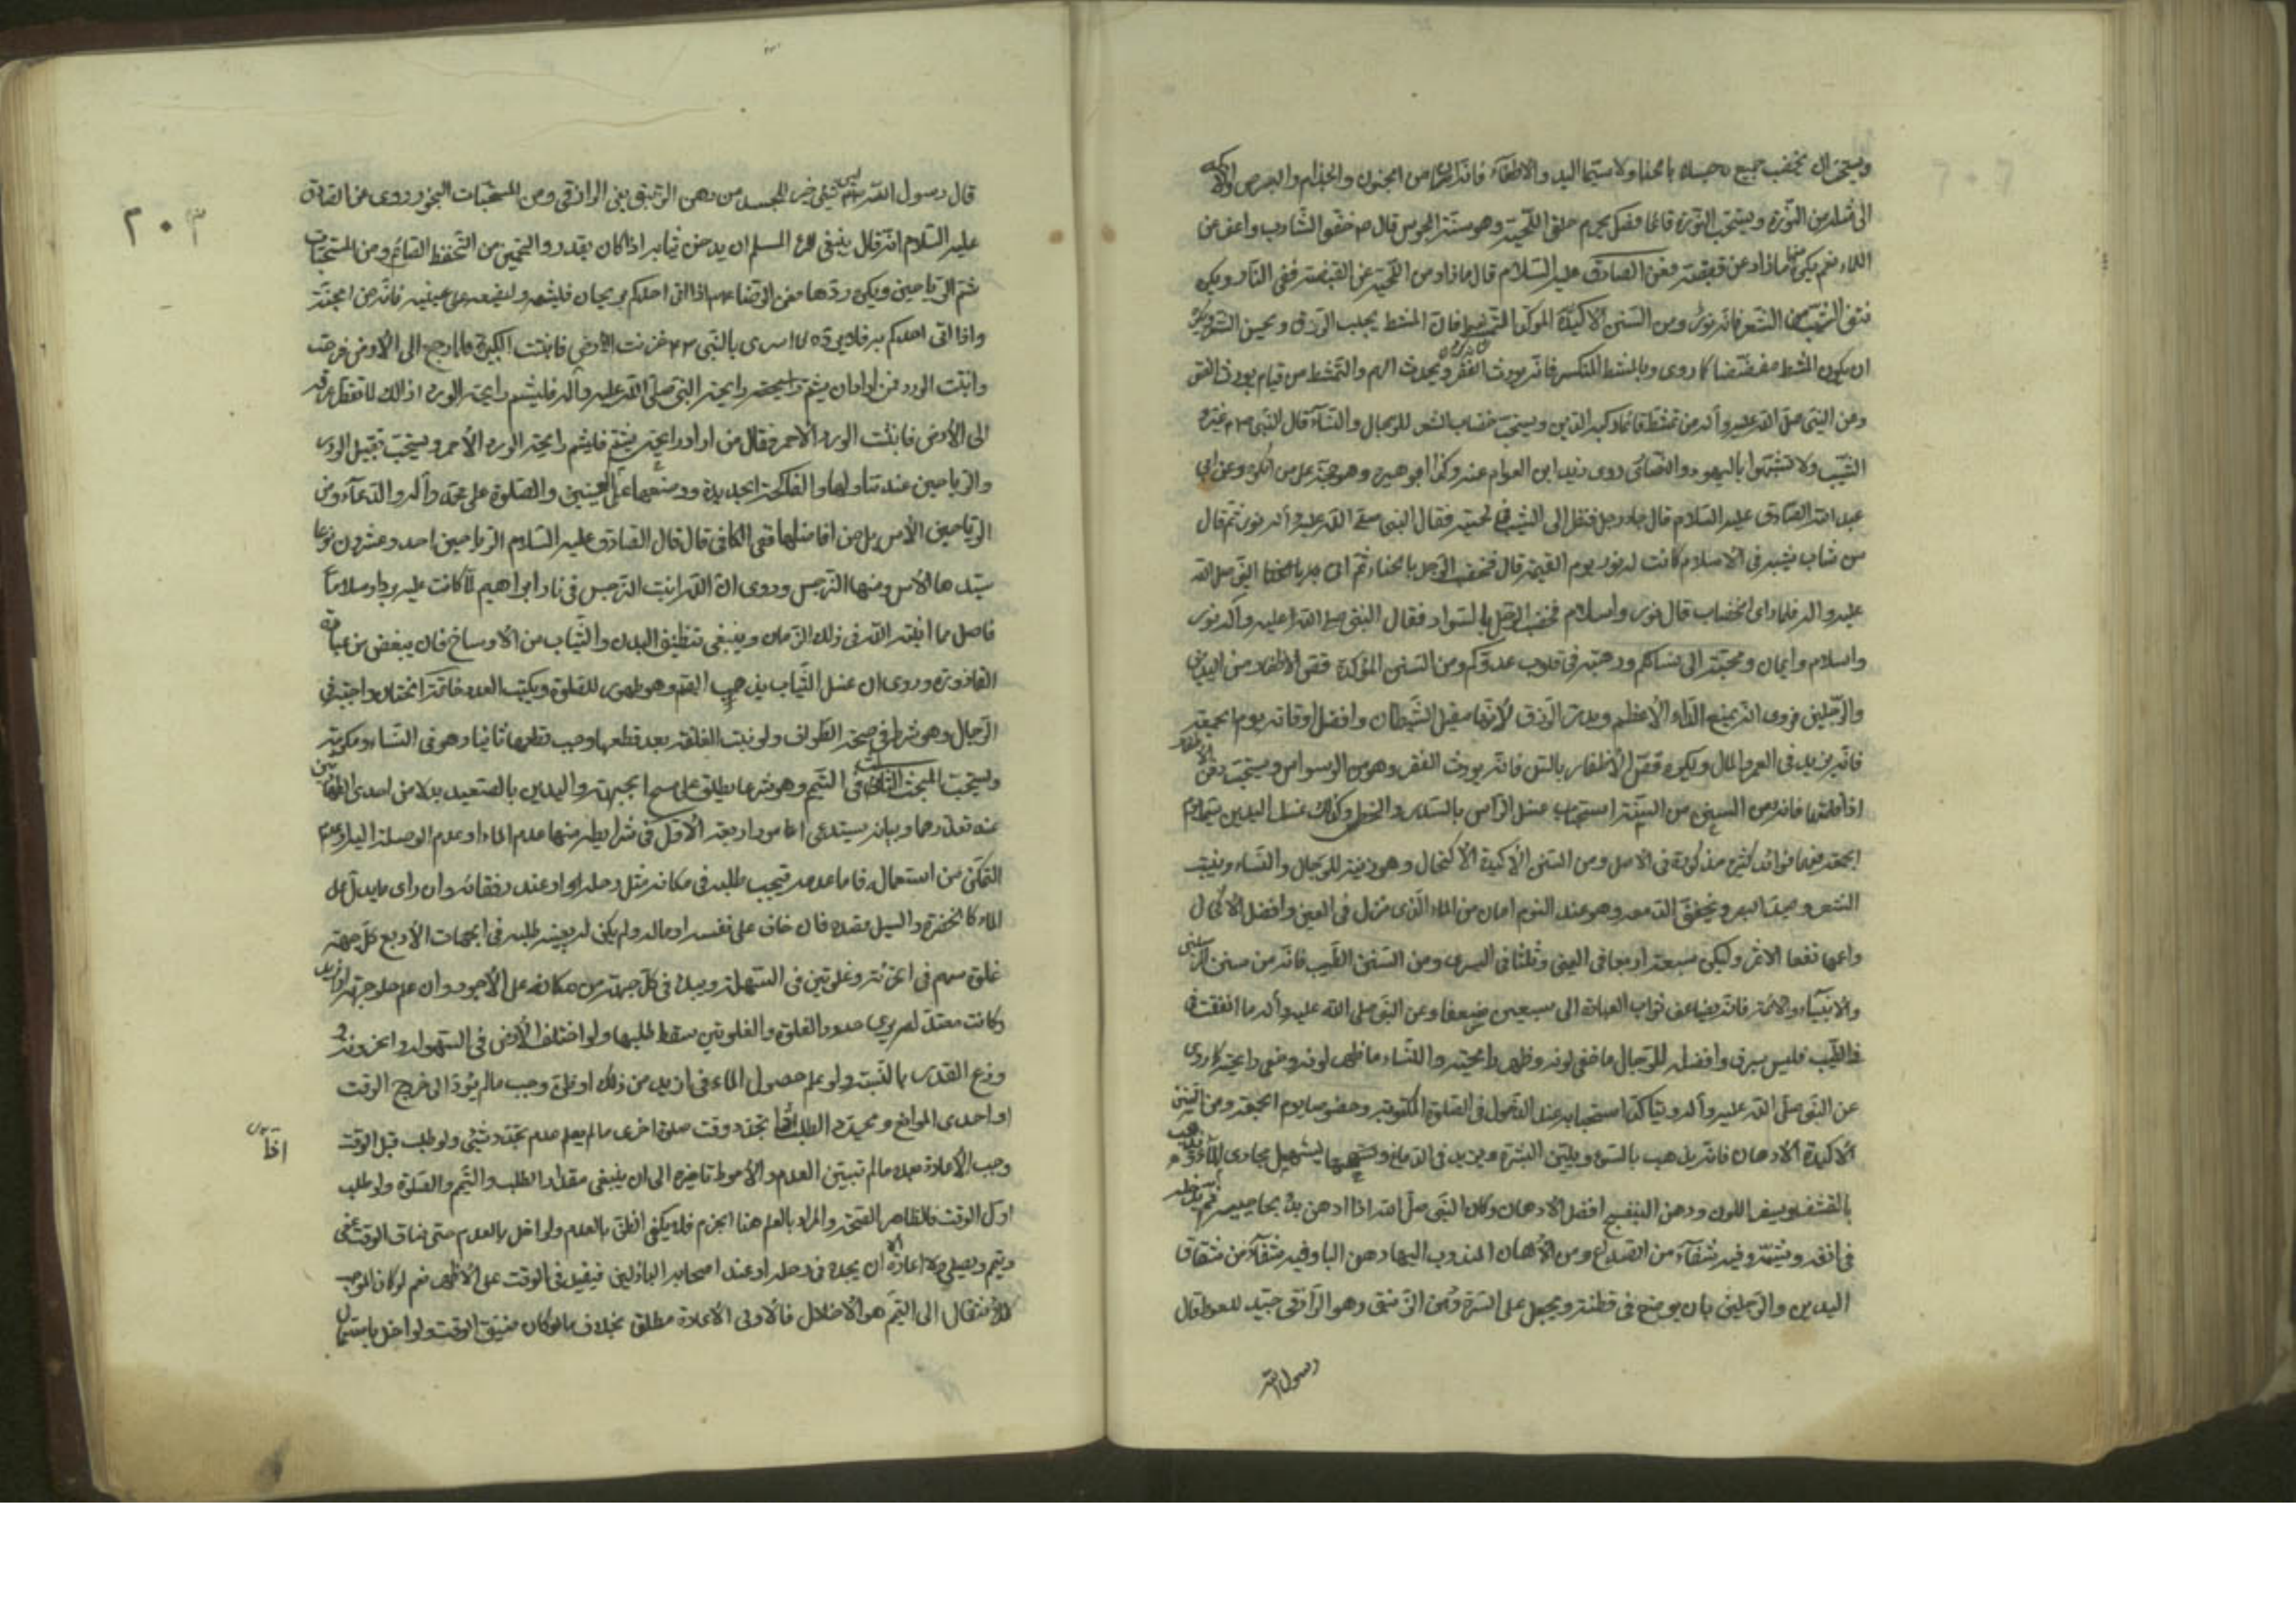 ويستحب ان يخضب جميع جسده بالحناء ولا سيما اليد والاظفار فانه امان من الجنون والجذام والبرص والاكلة
الى مثله من النورة ويستحب النورة قائما فصل يحرم حلق اللحية وهو سنة المجوس قال ص حفوا الشارب واعف عن
اللحاء نعم يكره منها ما زاد عن قبضته فعن الصادق عليه السلام قال ما زاد من اللحية عن القبضة ففي النار ويكره
نتف الشيب من الشعر فانه نور ومن السنن الاكيدة الموكدة التمشط فان المشط يجلب الرزق ويحسن الشعر ويكره
ان يكون المشط مفضضا كما روى وبالمشط المنكسر فانه يورث الفقر ويحدث الهم والتمشط من قيام يورث الفقر
وعن النبي صلى الله عليه وآله من تمشط قائما ركبه الدين ويستحب خضاب الشعر للرجال والنساء قال النبي ص غيروا
الشيب ولا تشبهوا باليهود والنصارى روى زبير ابن العوام عنه وكذا ابو هريرة وهو حجة على من انكره وعن ابي
عبد الله الصادق عليه السلام قال جاء رجل فنظر الى الشيب في لحيته فقال النبي صلى الله عليه وآله نور ثم قال
من شاب شيبة في الاسلام كانت له نورا يوم القيمة قال فخضب الرجل بالحناء ثم اتى النبي صلى الله
عليه وآله فلما راى الخضاب قال نور واسلام فخضب الرجل بالسواد فقال النبي صلى الله عليه وآله نور
واسلام وايمان ومحبة الى نسائكم ورهبة في قلوب عدوكم ومن السنن المؤكدة قص الاظفار من اليدين
والرجلين فروى انه يمنع الداء الاعظم ويدر الرزق لانها مقيل الشيطان وافضل اوقاته يوم الجمعة
فانه يزيد في العمر والمال ويكره قص الاظفار بالسن فانه يورث الفقر وهو من الوسواس ويستحب دفن الاظفار
اذا قلمها فانه من السنن من السنة استحباب غسل الراس بالسدر والخطمي وكذلك غسل اليدين سيما يوم
الجمعة ففيها فوائد كثيرة مذكورة في الاصل ومن السنن الاكيدة الاكتحال وهو زينة للرجال والنساء وينبت
الشعر ويحد البصر ويخفف الدمعة وهو عند النوم امان من الماء الذي ينزل في العين وافضل الاكحال
واعمها نفعا الاثمد وليكن سبعة اربعا في اليمنى وثلثا في اليسرى ومن السنن الطيب فانه من سنن المرسلين
والانبياء والائمة فانه يضاعف ثواب العبادة الى سبعين ضعفا وعن النبي صلى الله عليه وآله ما انفقت في
الطيب فليس بسرف وافضله للرجال ما خفي لونه وظهر رايحته وللنساء ما ظهر لونه وخفي رايحته كما روى
عن النبي صلى الله عليه وآله ويتاكد استحبابه عند الدخول في الصلوة المكتوبة وخصوصا يوم الجمعة ومن السنن
الاكيدة الادهان فانه يذهب بالسوء ويلين البشرة ويزيد في الدماغ ويسهل مجارى الماء ويذهب
بالقشف ويسفر اللون ودهن البنفسج افضل الادهان وكان النبي صلى الله اذا ادهن بدأ بحاجبيه ثم يدخله
في انفه ويشمه وفيه شفاء من الصداع ومن الادهان المندوب اليها دهن البان وفيه شفاء من شقاق
اليدين والرجلين بان يوضع في قطنة ويجعل على السرة ودهن الزنبق وهو الرازقي جيد للسعوط قال
رسول الله
٢٠٣
قال رسول الله ص ليس شيء خير للجسد من دهن الزنبق يعني الرازقي ومن المستحبات البخور روى عن الصادق
عليه السلام انه قال ينبغي للمرء المسلم ان يدخن ثيابه اذا كان يقدر ومن المستحبات
شم الرياحين ويكره ردها فعن الرضا ع اذا اتى احدكم بريحان فليشمه وليضعه على عينيه فانه من الجنة
واذا اتى احدكم به فلا يرده لما اسرى بالنبي ص حزنت الارض فانبتت الكبر فلما رجع الى الارض فرحت
وانبتت الورد فمن اراد ان يشم رايحة النبي صلى الله عليه وآله فليشم رايحة الورد
الى الارض فانبتت الورد الاحمر فقال من اراد رايحتى فليشم رايحة الورد الاحمر ويستحب تقبيل الورد
والرياحين عند تناولها والفاكهة الجديدة ووضعها على العينين والصلوة على محمد وآله والدعاء ومن
الرياحين الآس بل من افاضلها ففي الكافي قال قال الصادق عليه السلام الرياحين احد وعشرون نوعا
سيدها الآس ومنها النرجس وروى ان الله انبت النرجس في نار ابراهيم لما كانت عليه بردا وسلاما
فاصل مما انبته الله في ذلك الزمان وينبغي تنظيف البدن والثياب من الاوساخ فان يبغض من عباده
القاذورة وروى ان غسل الثياب يذهب الهم وهو طهور للصلوة ويكبت العدو خاتمة الختان واجبة في
الرجال وهو شرط في صحة الطواف ولو نبتت الغلفة بعد قطعها وجب قطعها ثانيا وهو في النساء مكرمة
ويستحب المبحث الثالث في التيمم وهو شرعا يطلق على مسح الجبهة واليدين بالصعيد بدلا من احدى الطهارتين
عند تعذرهما وبيانه يستدعي امورا اربعة الاول في شرايطه منها عدم الماء او عدم الوصلة اليه او عدم
التمكن من استعماله فاما عدمه فيجب طلبه في مكانه مثل رحله او عند رفقائه وان راى ما يدل على
الماء كالخضرة والسيل قصده فان خاف على نفسه او ماله ولم يكن له يعينه طلبه في الجهات الاربع كل جهة
غلوة سهم في الحزنة وغلوتين في السهلة ويبدأ في كل جهة من مكانه على الاجود وان علم خلو جهة
وكانت معتدلة حدود الغلوة والغلوتين سقط طلبها ولو اختلف الارض في السهولة والحزونة
وزع القدر بالنسبة ولو علم حصول الماء في ازيد من ذلك او ظن وجب ما لم يؤد الى خروج الوقت
او احدى الموانع ويجدد الطلب اذا تجدد وقت صلوة اخرى ما لم يعلم عدم تجدد شيء ولو طلب قبل الوقت
وجب الاعادة بعده ما لم يتبين العدم والاحوط تاخيره الى ان ينبغي مقدار الطلب والتيمم والصلوة ولو طلب
اول الوقت فالظاهر الصحة والمراد بالعلم هنا الجزم فلا يكفي الظن بالعدم ولو اخل بالعدم حتى ضاق الوقت عصى
وتيمم ويصلي ولا اعادة الا ان يجده في رحله او عند اصحابه الباذلين فيعيد في الوقت على الاظهر نعم لو كان الموجب
للانتقال الى التيمم هو الاخلال فالاولى الاعادة مطلقا بخلاف ما لو كان ضيق الوقت ولو اخل باستعمال